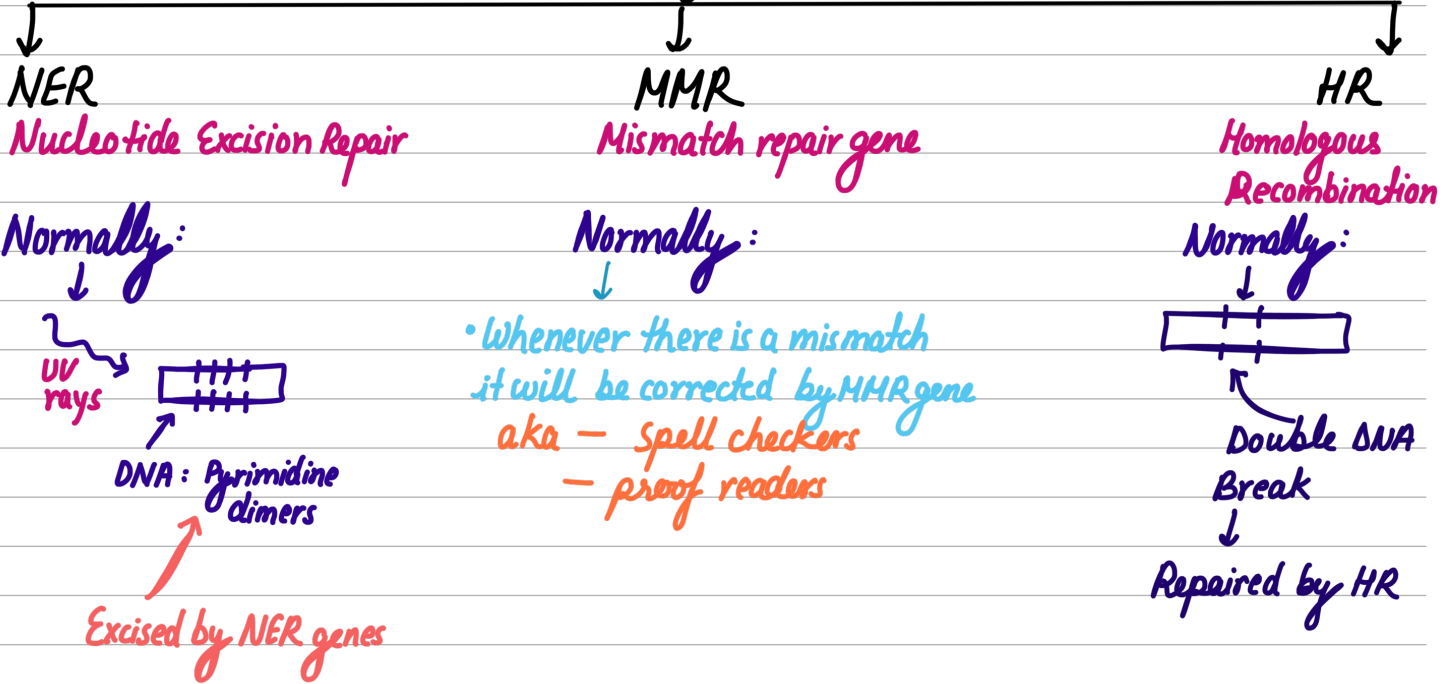 NER
Nucleotide Excision Repair
Normally:
UV
rays
DNA: Pyrimidine
dimers
Excised by NER genes
MMR
Mismatch repair gene
Normally:
• Whenever there is a mismatch
it will be corrected by MMR gene
aka — spell checkers
— proof readers
HR
Homologous
Recombination
Normally:
Double DNA
Break
Repaired by HR